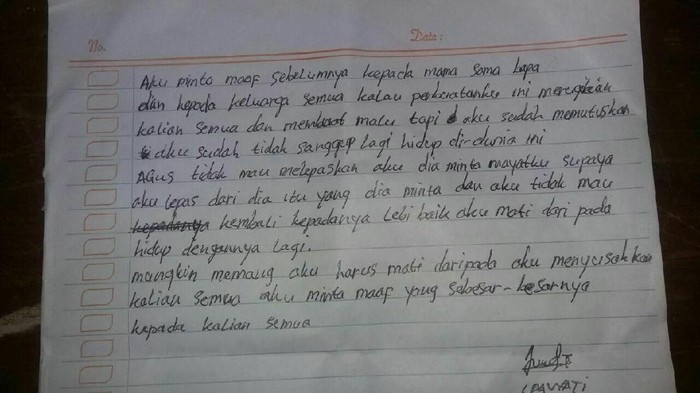 No. Date:
Aku minta maaf sebelumnya kepada mama sama bapa
dan kepada keluarga semua kalau perbuatanku ini merugikan
kalian semua dan membuat malu tapi aku sudah memutuskan
aku sudah tidak sanggup lagi hidup di dunia ini
Agus tidak mau melepaskan aku dia minta mayatku supaya
aku lepas dari dia itu yang dia minta dan aku tidak mau
kepadanya kembali kepadanya lebi baik aku mati dari pada
hidup dengannya lagi.
mungkin memang aku harus mati daripada aku menyusahkan
kalian semua aku minta maaf yang sebesar-besarnya
kepada kalian semua